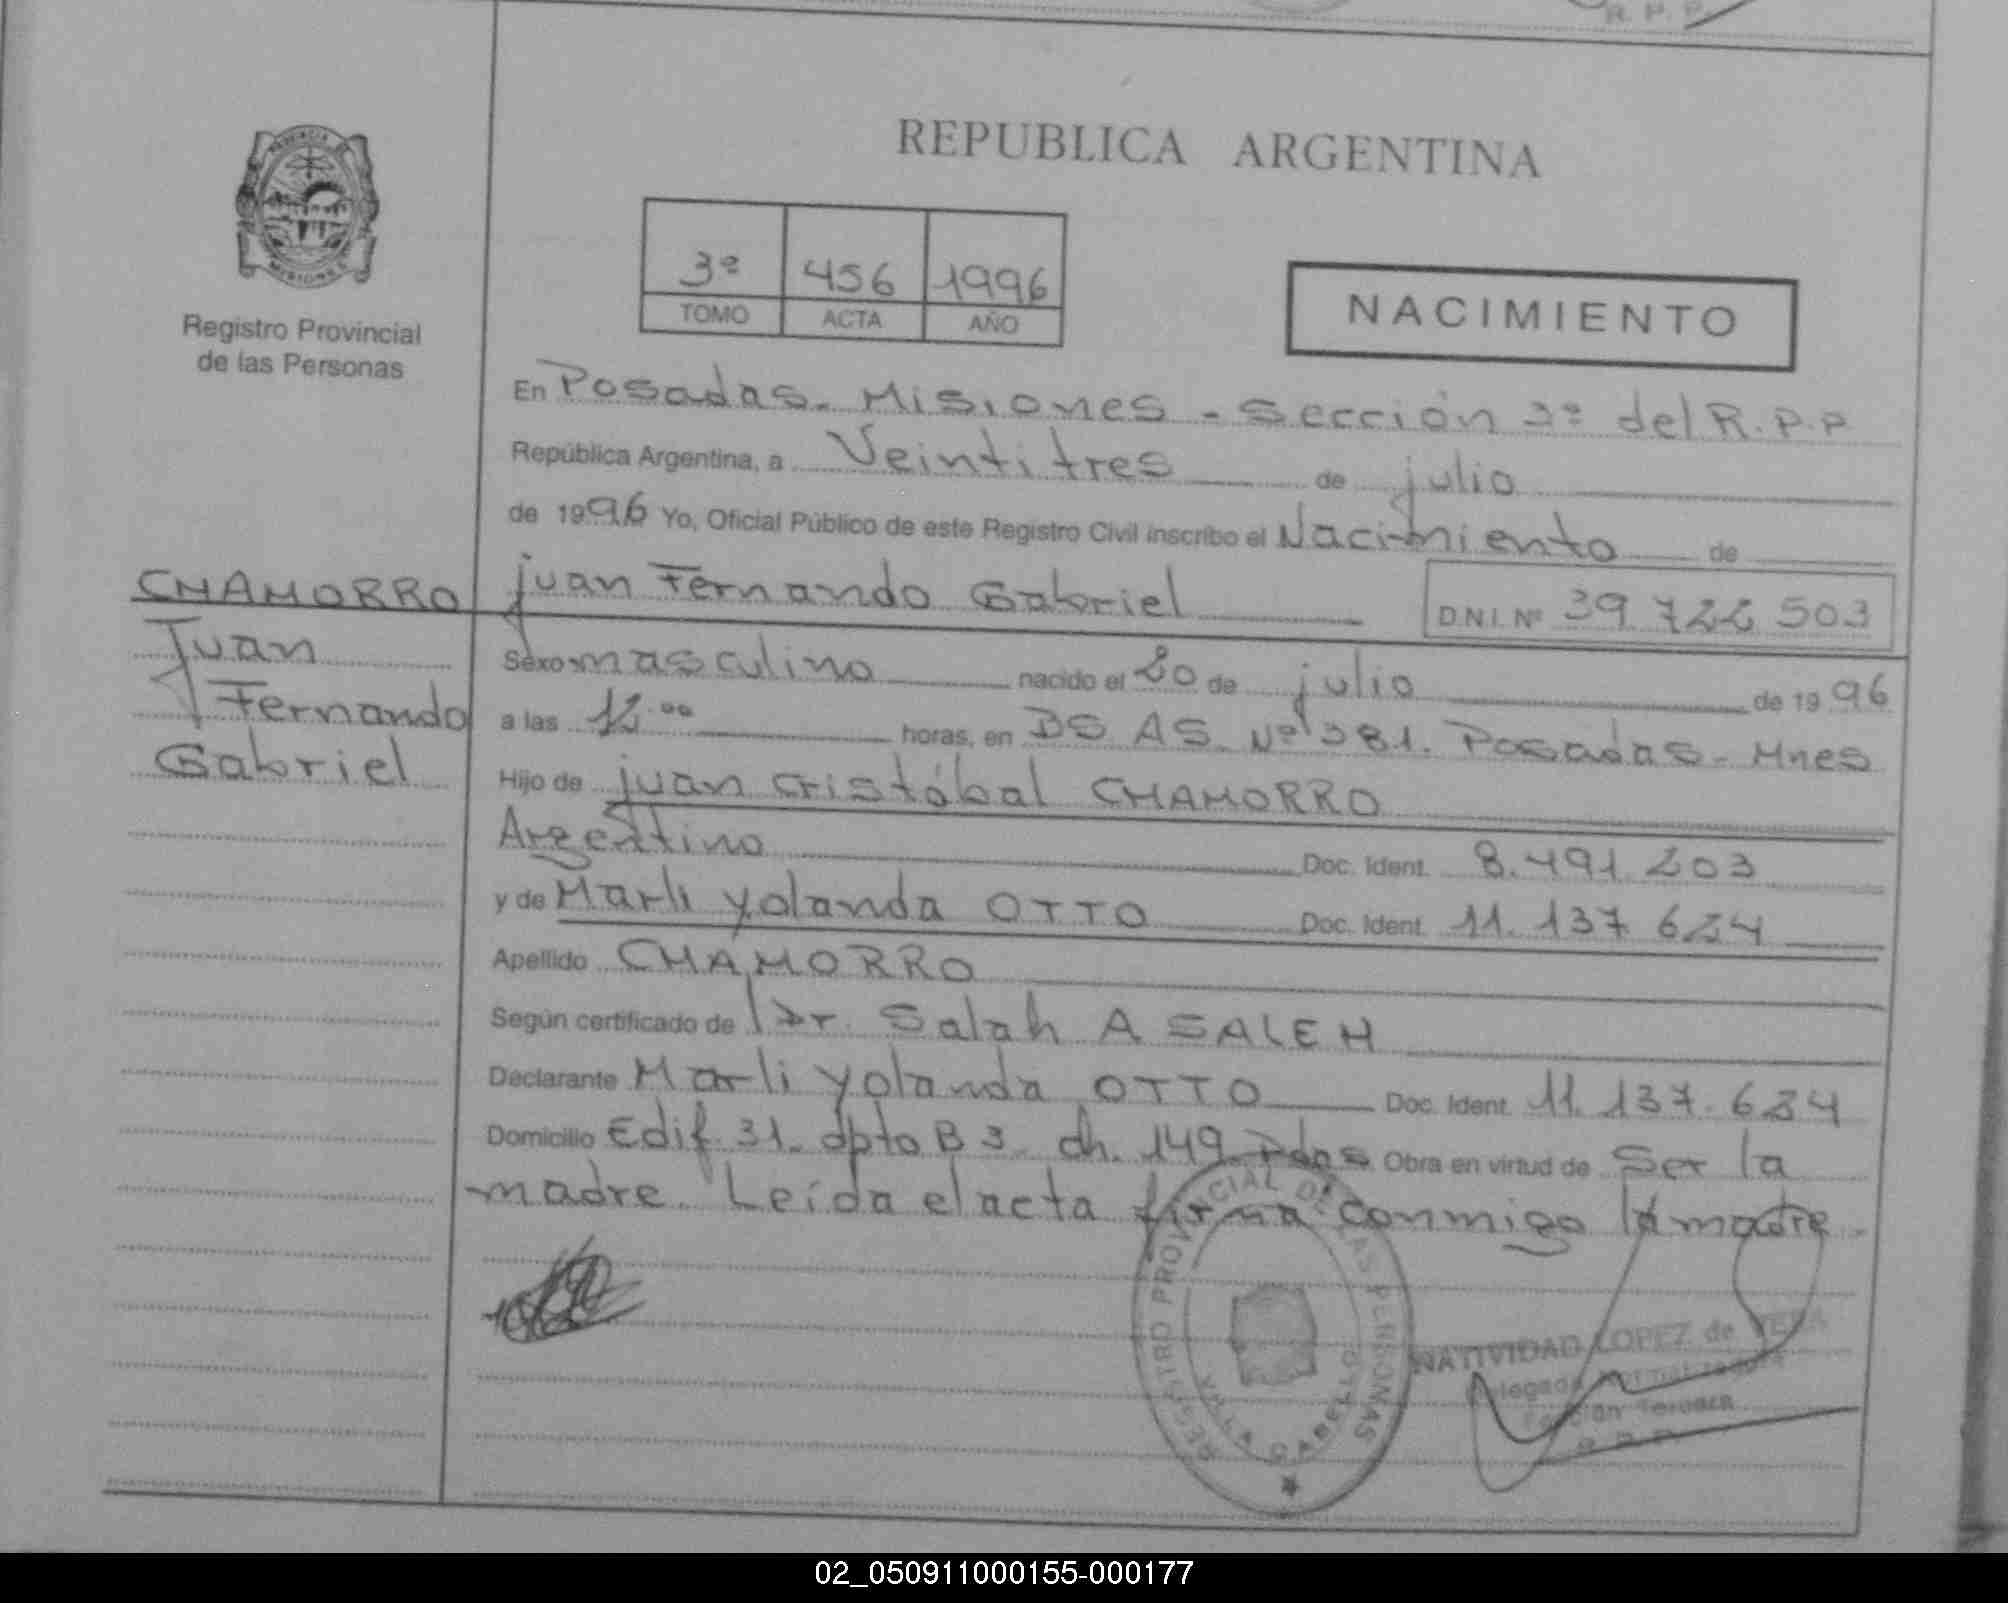 R. P. P.
REPUBLICA ARGENTINA
PROVINCIA DE
MISIONES
Registro Provincial
de las Personas
3º 456 1996
TOMO ACTA AÑO
NACIMIENTO
En Posadas. Misiones - Sección 3º del R.P.P
República Argentina, a Veintitres de julio
de 1996 Yo, Oficial Público de este Registro Civil inscribo el Nacimiento de
CHAMORRO
Juan
Fernando
Gabriel
juan Fernando Gabriel D.N.I. Nº 39 722 503
Sexo masculino nacido el 20 de julio de 19 96
a las 12.00 horas, en BS AS. Nº 381. Posadas - Mnes
Hijo de juan Cristóbal CHAMORRO
Argentino Doc. Ident. 8.491.203
y de Marli Yolanda OTTO Doc. Ident. 11.137 624
Apellido CHAMORRO
Según certificado de Dr. Salah A SALEH
Declarante Marli Yolanda OTTO Doc. Ident. 11.137.624
Domicilio Edif. 31. dpto B 3. ch. 149. Pdas Obra en virtud de Ser la
madre. Leída el acta firma conmigo la madre.
REGISTRO PROVINCIAL DE LAS PERSONAS
VILLA CABELLO
NATIVIDAD LOPEZ de VERA
Sección Tercera
R. P. P.
02_050911000155-000177